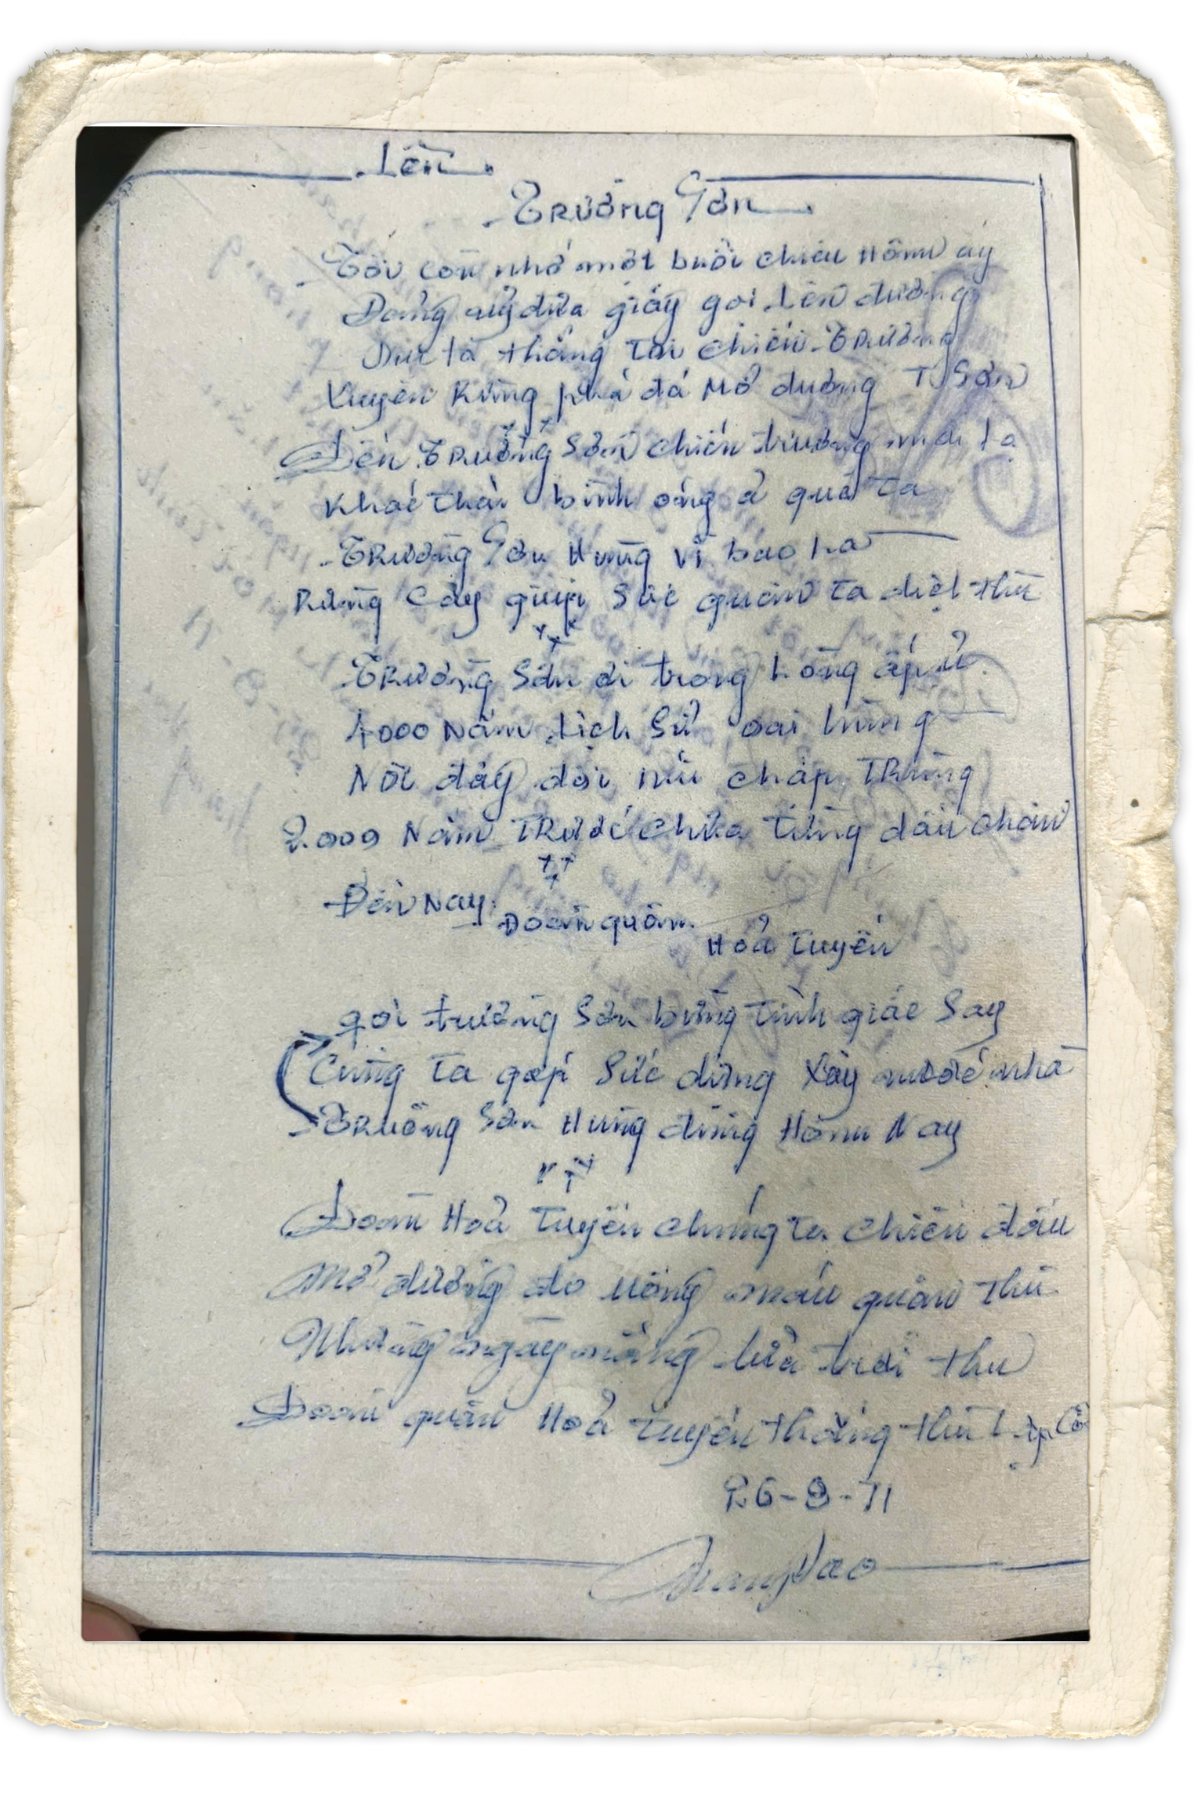 Lên
Trường Sơn
Tôi còn nhớ một buổi chiều hôm ấy
Đảng uỷ đưa giấy gọi lên đường
ta thẳng tới chiến Trường
Xuyên Rừng phá đá Mở đường T Sơn
Đến Trường Sơn chiến trường mới lạ
Khác thời bình ở quê ta
Trường Sơn Hùng vĩ bao la
Rừng Cây giúp Sức quân ta diệt thù
Trường Sơn ơi trong lòng ấp ủ
4000 Năm Lịch Sử oai hùng
Nơi đây đồi núi chập Trùng
2.000 Năm Trước chưa từng dấu chân
Đến Nay
Đoàn quân
Hoả Tuyến
gọi trường Sơn bừng tỉnh giấc Say
Cùng ta góp Sức dựng Xây nước nhà
Trường Sơn Hùng dũng Hôm Nay
Đoàn Hoả Tuyến chúng ta chiến đấu
Mở đường do uống máu quân thù
Những ngày nắng lửa trời thu
Đoàn quân Hoả Tuyến thắng thù lập Cô
26-8-71